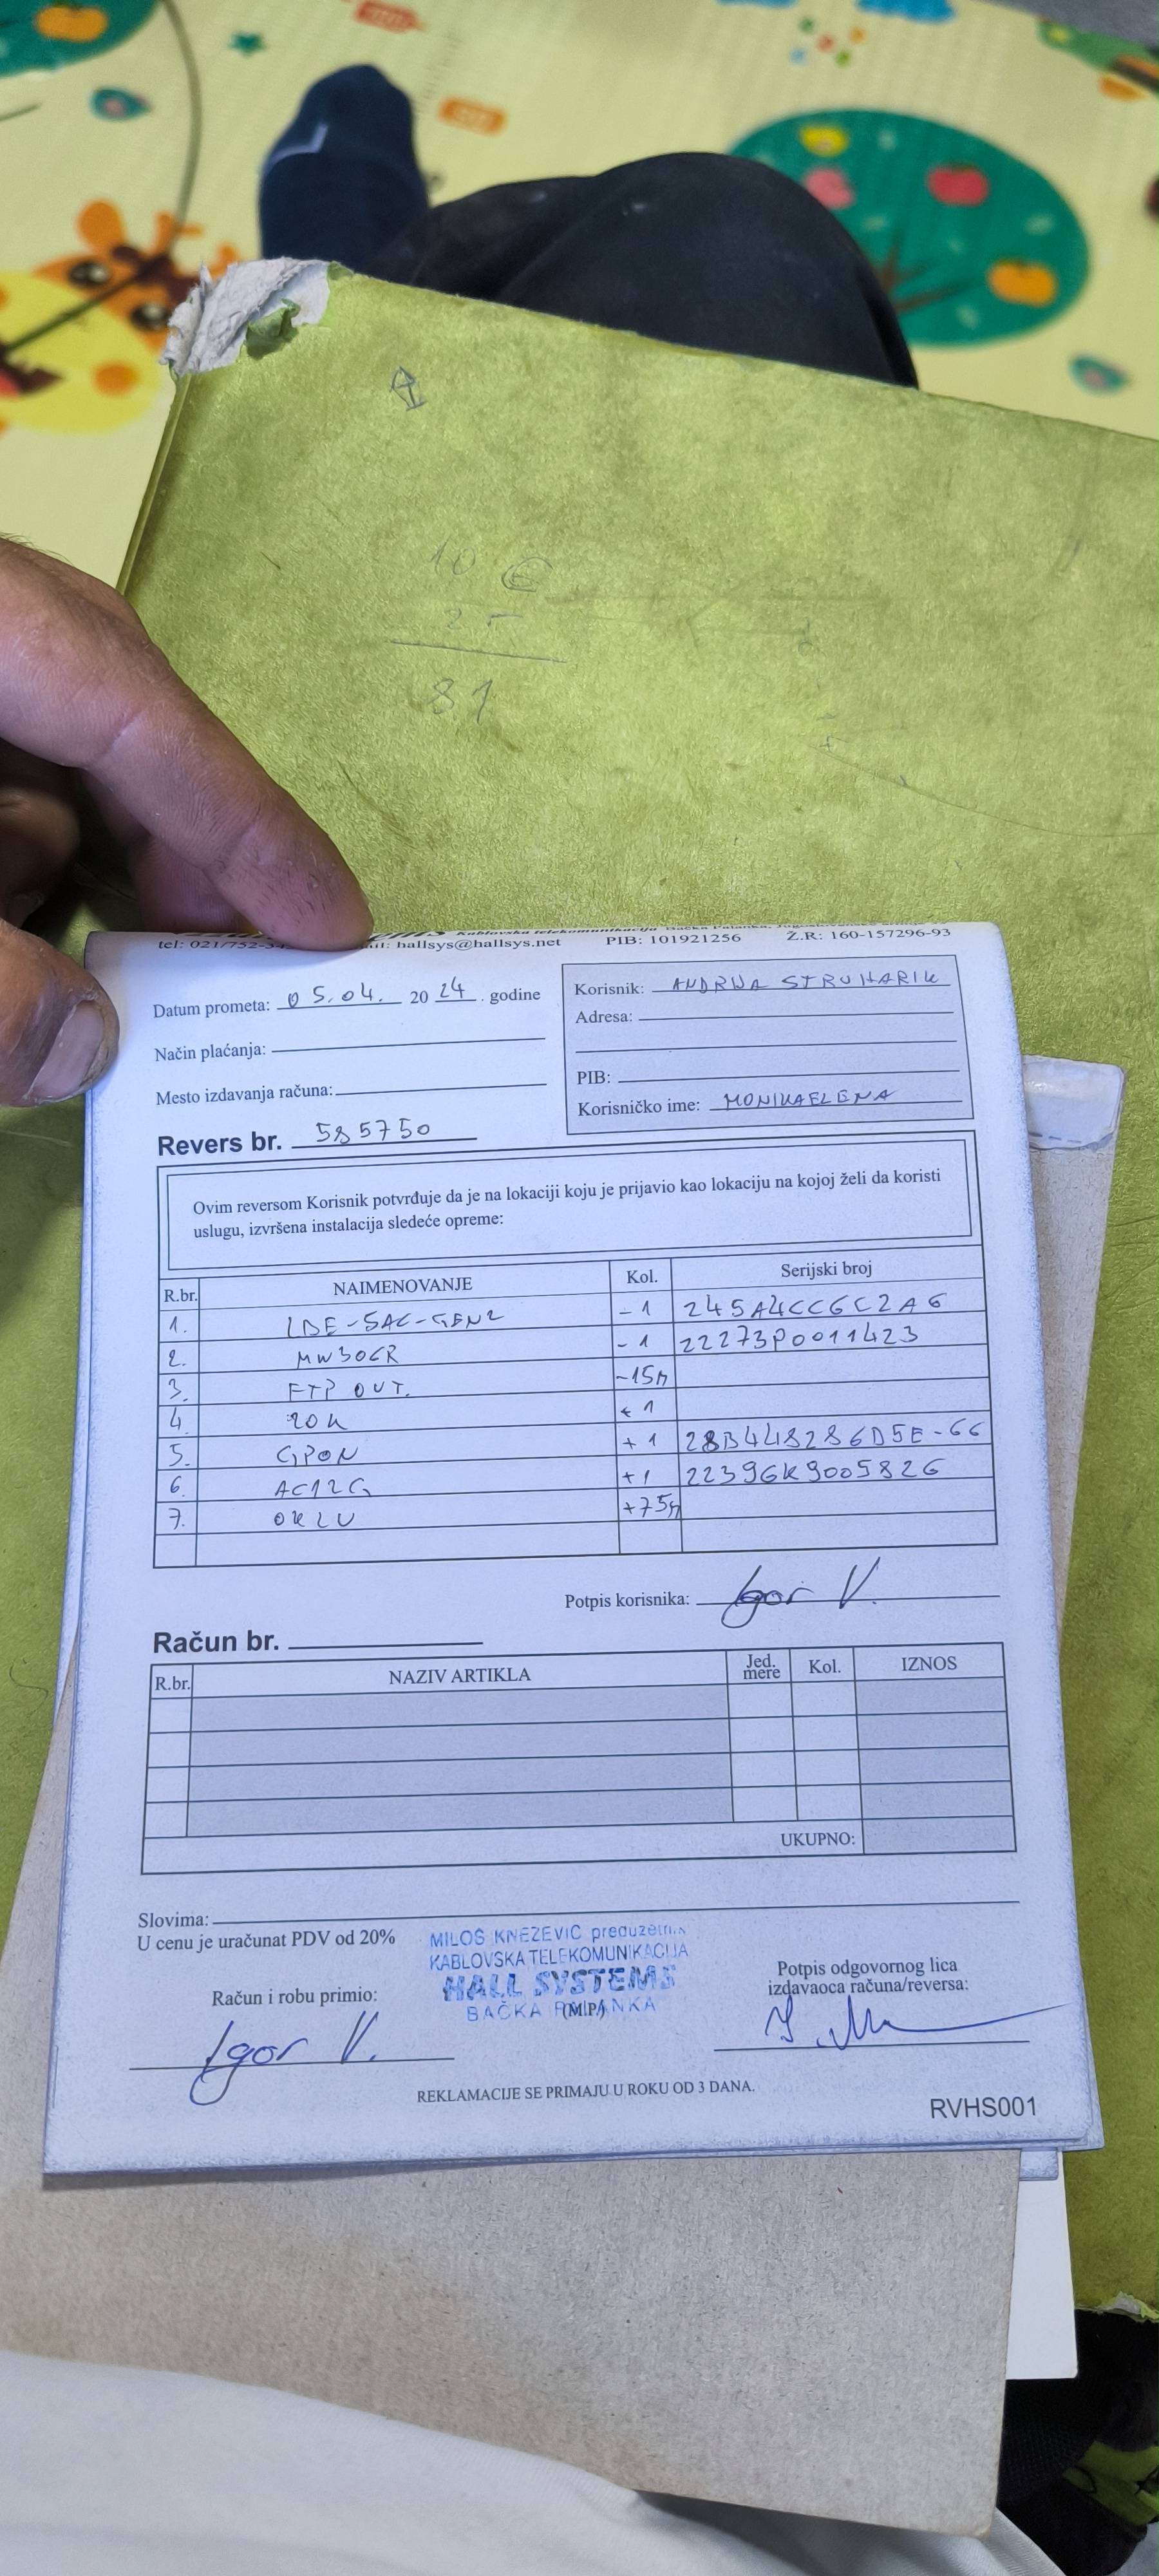 10 6
25
81
Kablovska telekomunikacija Bačka Palanka,
tel: 021/752-3 hallsys@hallsys.net PIB: 101921256 Ž.R: 160-157296-93
Datum prometa: 05.04. 20 24 . godine
Korisnik: ANDRIJA STRUHARIK
Adresa:
Način plaćanja:
PIB:
Mesto izdavanja računa:
Korisničko ime: MONIKAELENA
Revers br. 585750
Ovim reversom Korisnik potvrđuje da je na lokaciji koju je prijavio kao lokaciju na kojoj želi da koristi
uslugu, izvršena instalacija sledeće opreme:
R.br. NAIMENOVANJE Kol. Serijski broj
1. LBE-5AC-GEN2 -1 245A4CC6C2A6
2. MW306R -1 22273P0011423
3. FTP OUT. -15m
4. 20K +1
5. GPON +1 28B448286D5E-66
6. AC12G +1 22396K9005826
7. OKLU +75m
Potpis korisnika: Igor V.
Račun br.
R.br. NAZIV ARTIKLA Jed. mere Kol. IZNOS
UKUPNO:
Slovima:
U cenu je uračunat PDV od 20%
MILOŠ KNEŽEVIĆ preduzetnik
KABLOVSKA TELEKOMUNIKACIJA
HALL SYSTEMS
BAČKA PALANKA
(M.P.)
Račun i robu primio:
Igor V.
Potpis odgovornog lica
izdavaoca računa/reversa:
REKLAMACIJE SE PRIMAJU U ROKU OD 3 DANA.
RVHS001